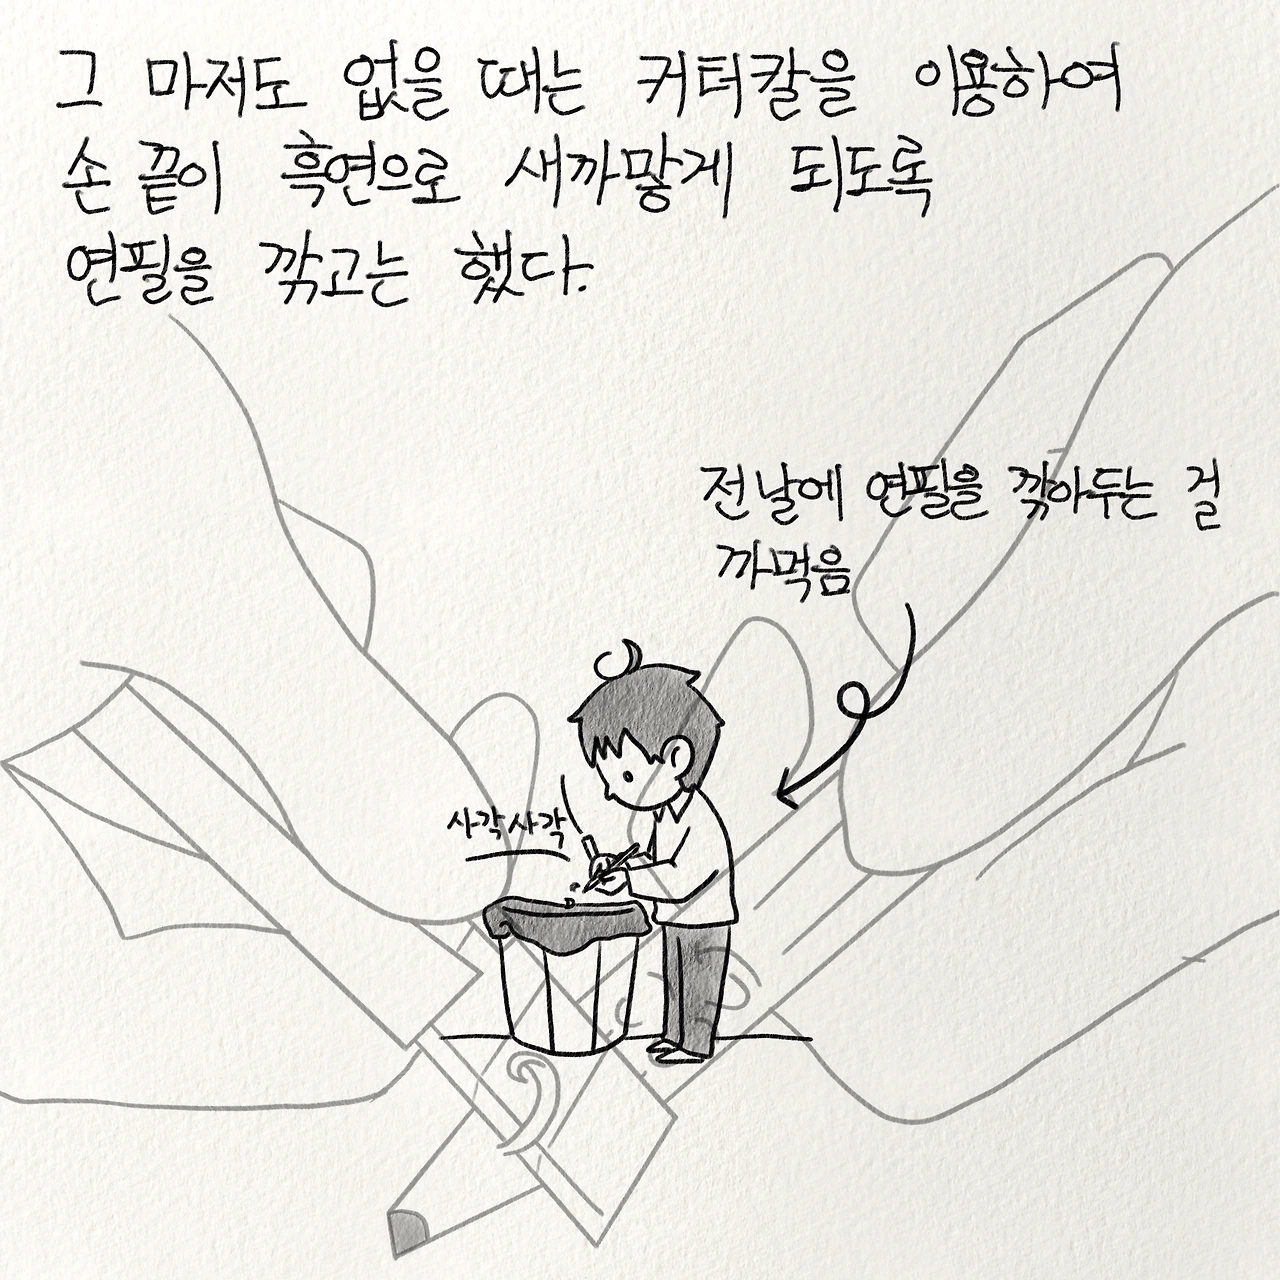 그 마저도 없을 때는 커터칼을 이용하여
손 끝이 흑연으로 새까맣게 되도록
연필을 깎고는 했다.
전날에 연필을 깎아두는 걸
까먹음
사각사각